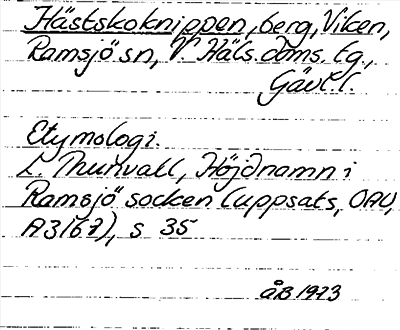 Hästskoknippen, berg, Viken,
Ramsjö sn, V. Häls. doms. tg.,
Gävl. l.
Etymologi.
L. Thunvall, Höjdnamn i
Ramsjö socken (uppsats, OAU,
A3167), s 35
åB 1973